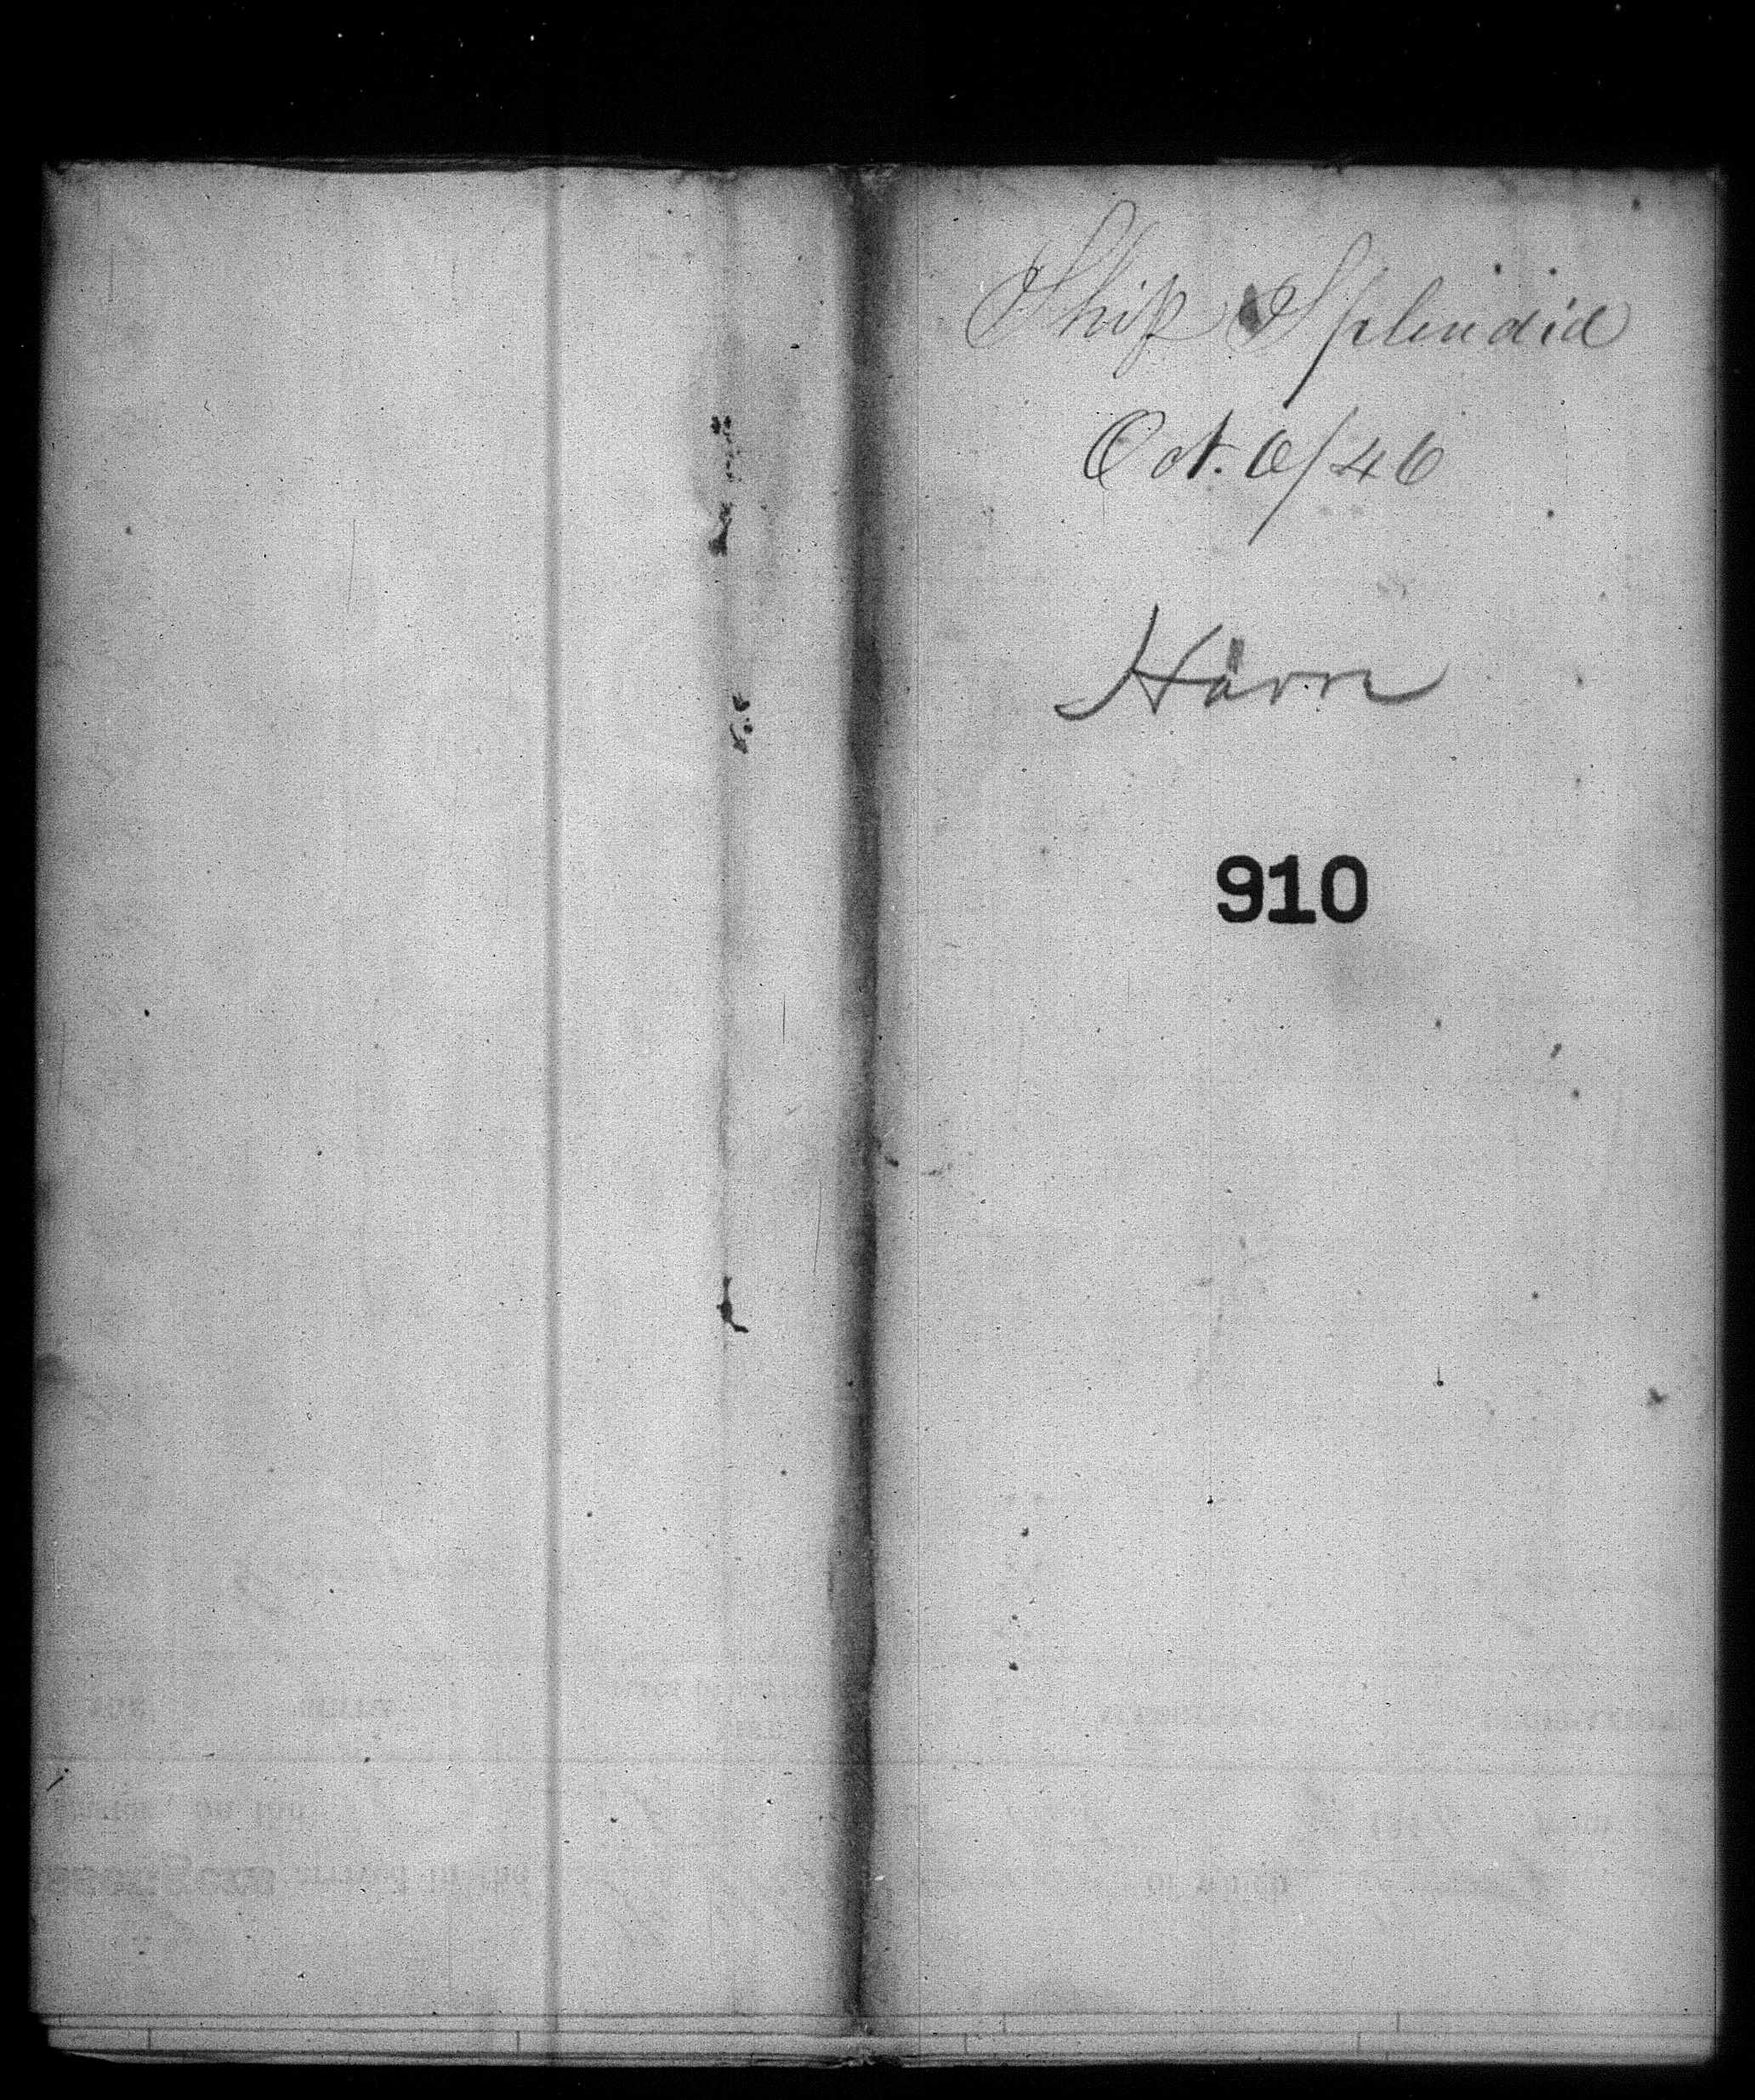 Ship Splendid
Oct. 6/46
Havre
910